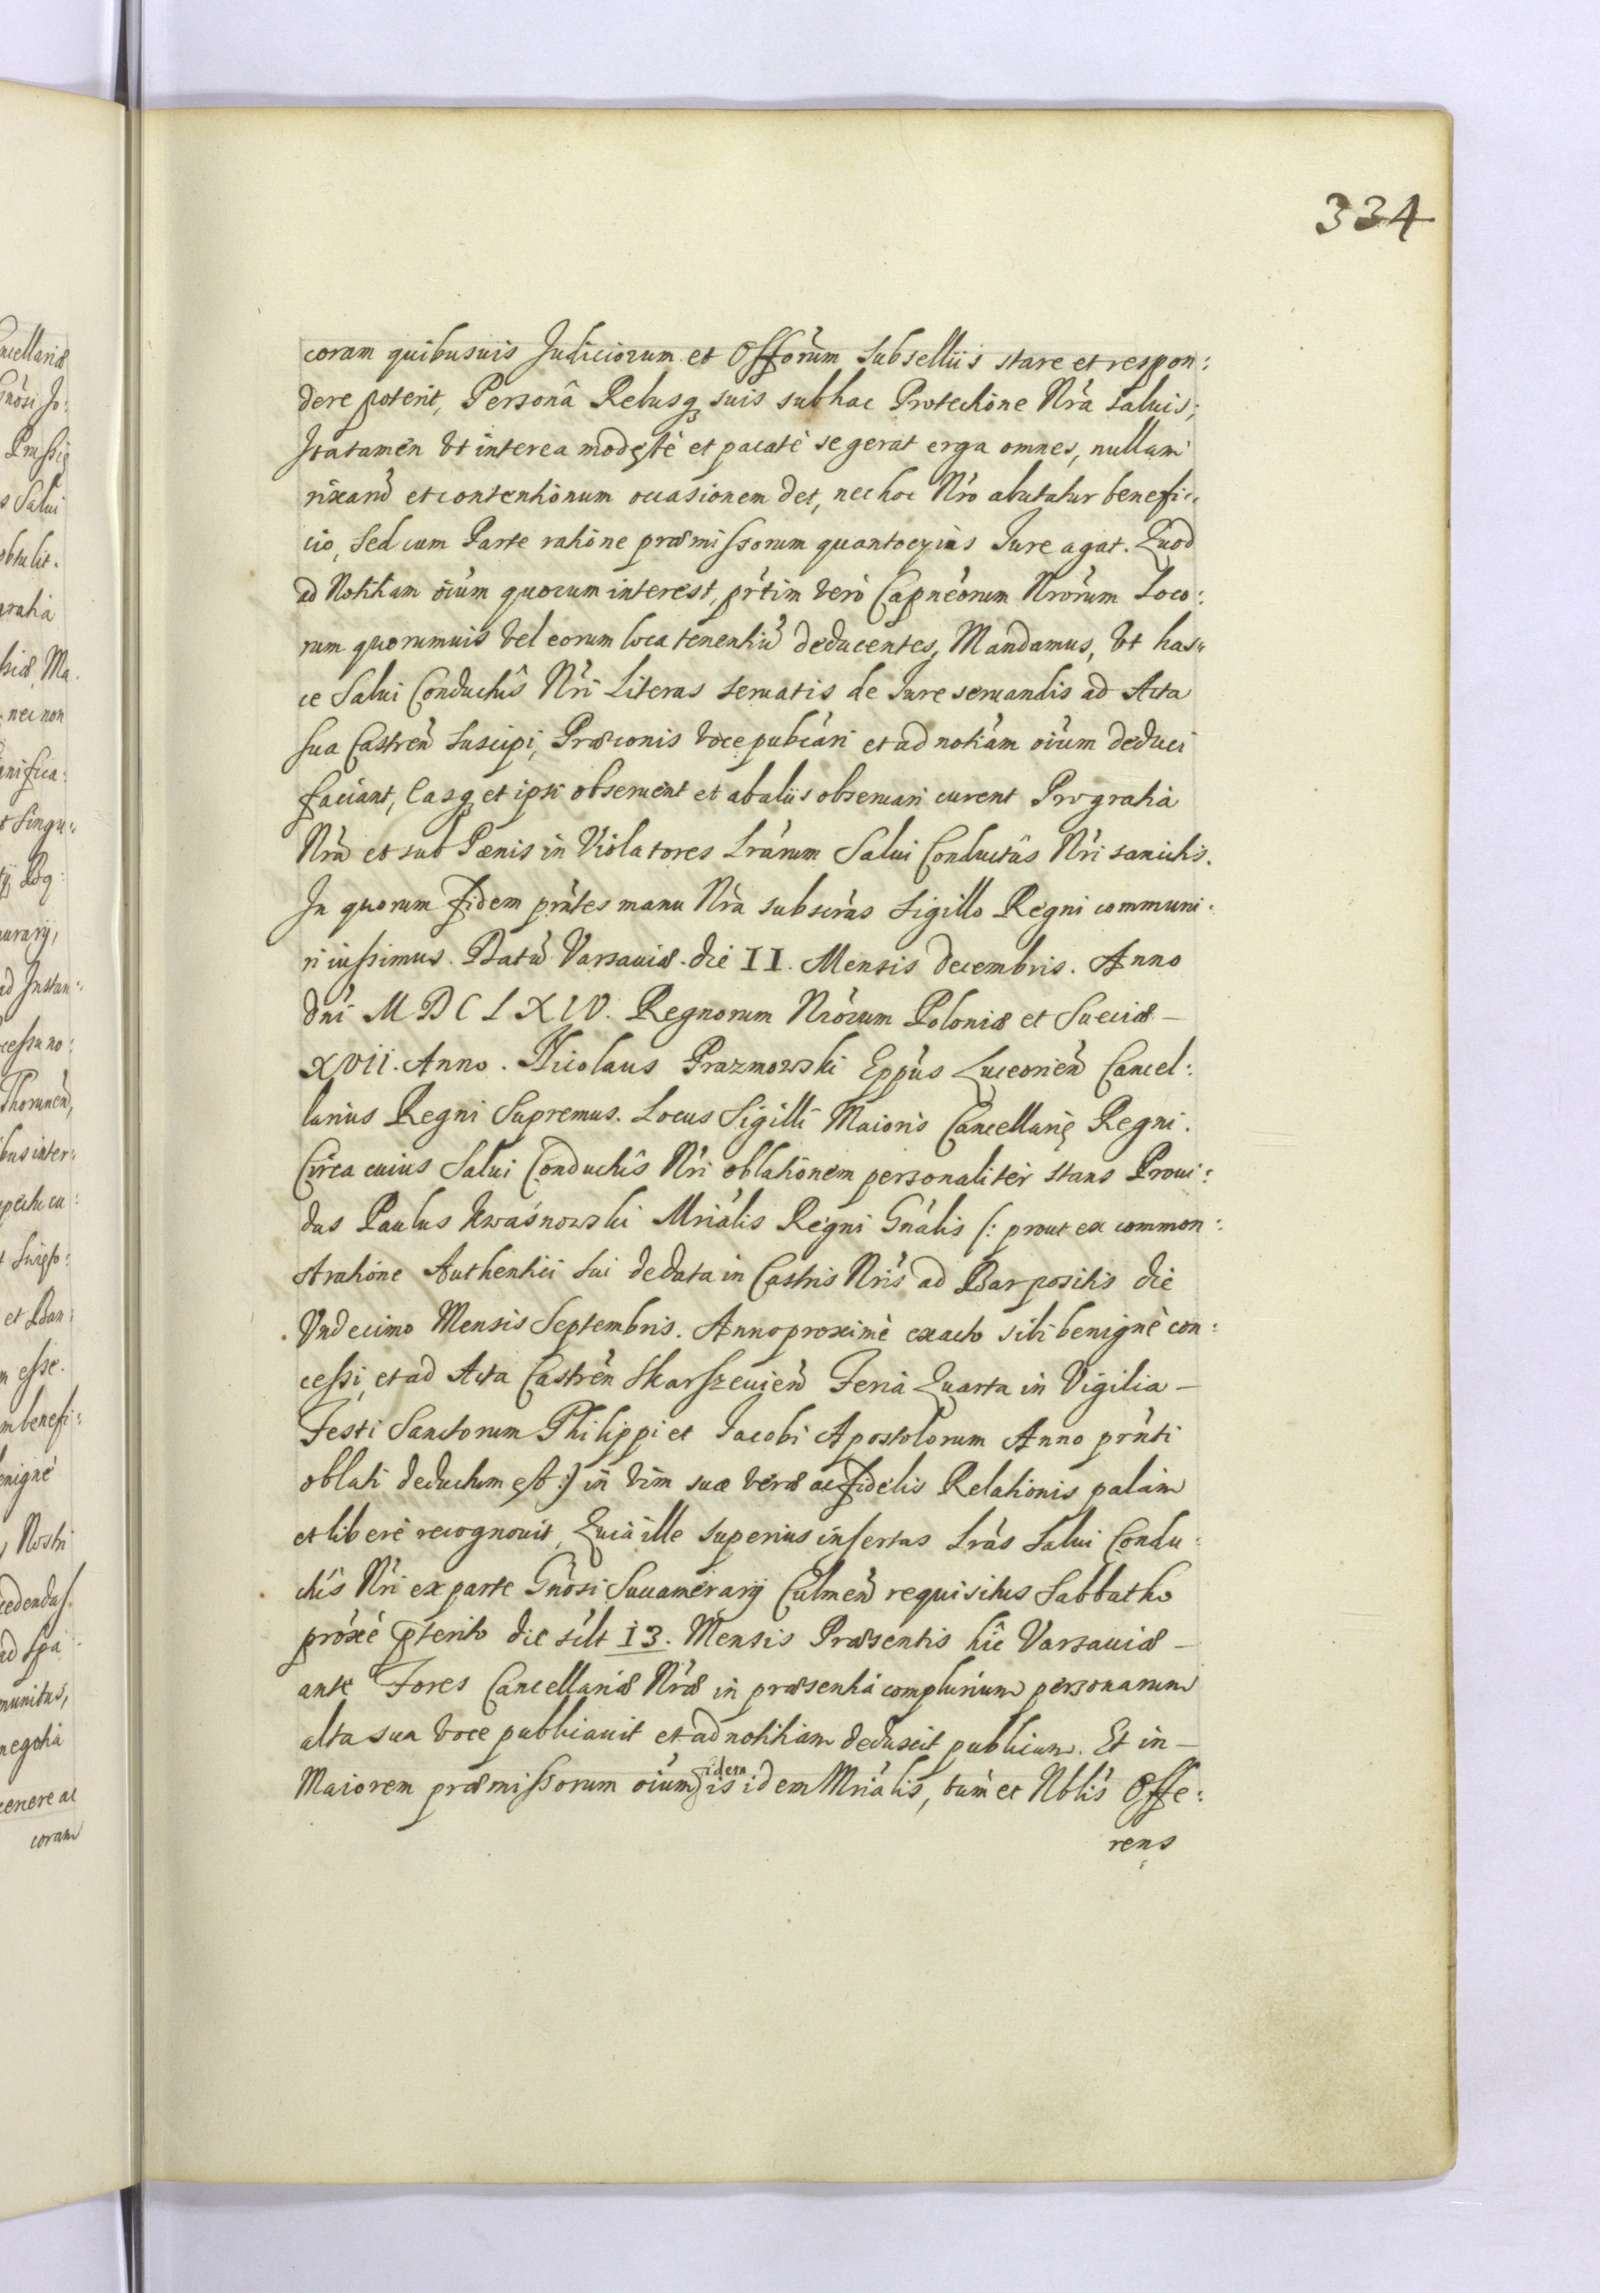 334
coram quibusuis Judiciorum et Offorum Subselliis stare et respon:
dere poterit, Personâ Rebusq suis sub hac Protectione Nrà saluis;
Itatamen vt interea modestè et pacatè se gerat erga omnes, nullam
rixand et contentionum occasionem det, nec hoc Nro abutatur benefi:
cio, sed cum Parte ratione præmissorum quantocyius Jure agat. Quod
ad Notitiam oium quorum interest, prtim verò Capneorum Nrorum Loco:
rum quorumuis vel eorum loca tenentiu deducentes, Mandamus, vt has:
ce Salui Conductûs Nri Literas seruatis de Jure seruandis ad Acta
sua Castren suscipi, Præconis voce publcari et ad notiam oium deduci
faciant, Easq et ipsi obseruent et ab aliis obseruari curent Pro gratia
Nra et sub Pœnis in Violatores Lrarum Salui Conductûs Nri sancitis.
In quorum fidem prntes manu Nra subscras Sigillo Regni communi:
ri iussimus. Datu Varsauiæ die II. Mensis Decembris. Anno
dni MDCLXIV. Regnorum Nrorum Poloniæ et Sueciæ –
XVII. Anno. Nicolaus Prazmowski Eppus Luceorien Cancel:
larius Regni Supremus. Locus Sigilli Maioris Cancellarię Regni.
Circa cuius Salui Conductûs Nri oblationem personaliter stans Proui:
dus Paulus Kwaśnowski Mrialis Regni Gnalis (: prout ex common:
stratione Authentici sui de data in Castris Nris ad Bar positis die
Vndecimo Mensis Septembris. Anno proximè exacto sibi benignè con:
cessi, et ad Acta Castren Skarszeuien Feria Quarta in Vigilia –
Festi Sanctorum Philippi et Jacobi Apostolorum Anno prnti
oblati deductum est :) in vim suæ veræ ac fidelis Relationis palam
et liberè recognouit, Quia ille superius insertas Lras Salui Condu:
ctûs Nri ex parte Gnosi Succamerarij Culmen requisitus Sabbatho
proxè pterito die silt 13. Mensis Præsentis hic Varsauiæ –
ante Fores Cancellariæ Nræ in præsentia complurium personarum
alta sua voce publicauit et ad notitiam deduxit publicam. Et in –
Maiorem præmissorum oium fidem is idem Mrialis, tum et Nblis Offe:
rens